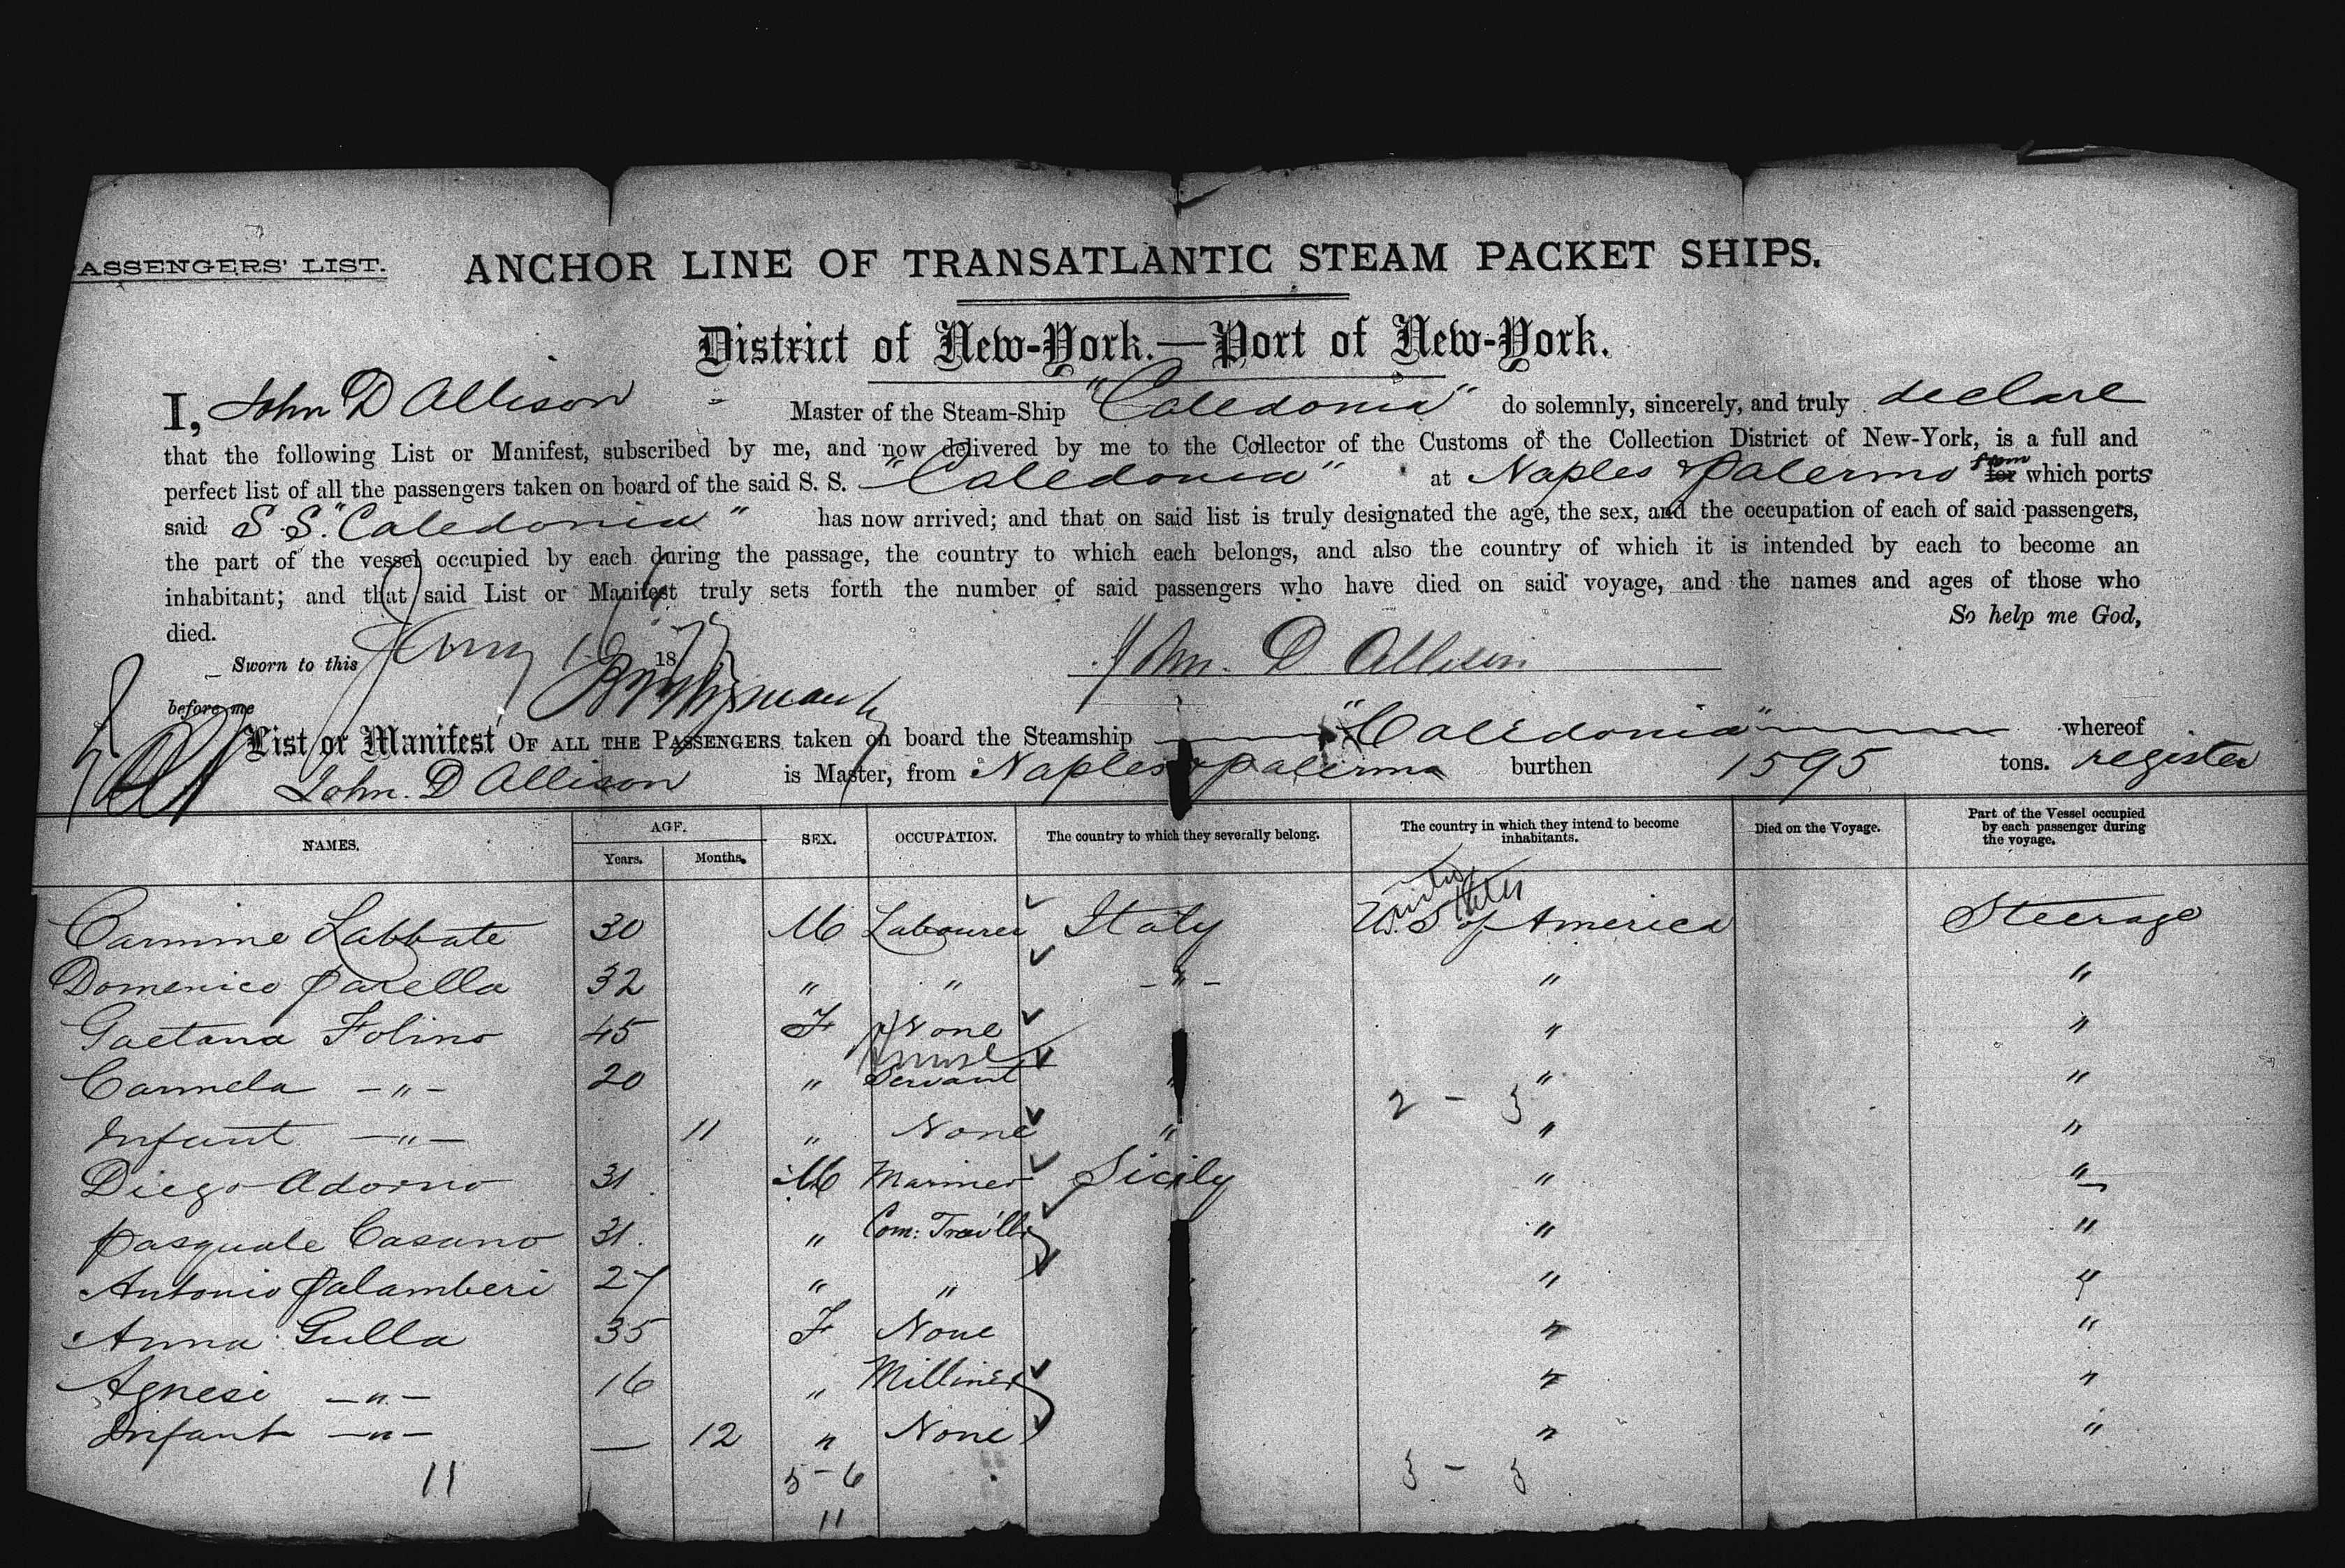 ASSENGERS' LIST. ANCHOR LINE OF TRANSATLANTIC STEAM PACKET SHIPS.
District of New-York.—Port of New-York.
I, John D Allison Master of the Steam-Ship "Caledonia" do solemnly, sincerely, and truly declare
that the following List or Manifest, subscribed by me, and now delivered by me to the Collector of the Customs of the Collection District of New-York, is a full and
perfect list of all the passengers taken on board of the said S. S. "Caledonia" at Naples & Palermo from for which ports
said S.S. "Caledonia" has now arrived; and that on said list is truly designated the age, the sex, and the occupation of each of said passengers,
the part of the vessel occupied by each during the passage, the country to which each belongs, and also the country of which it is intended by each to become an
inhabitant; and that said List or Manifest truly sets forth the number of said passengers who have died on said voyage, and the names and ages of those who
died. So help me God,
Sworn to this 18 John. D Allison
before me
List or Manifest OF ALL THE PASSENGERS taken on board the Steamship "Caledonia" whereof
John. D Allison is Master, from Naples & Palermo burthen 1595 tons. register
NAMES. AGE. SEX. OCCUPATION. The country to which they severally belong. The country in which they intend to become inhabitants. Died on the Voyage. Part of the Vessel occupied by each passenger during the voyage.
Years. Months.
United States
Carmine Labbate 30 M Labourer Italy U.S of America Steerage
Domenico Parella 32 " " - " - " "
Gaetana Folino 45 F None " "
Carmela - " - 20 " Servant " " "
2 - 3
Infant - " - 11 " None " " "
Diego Adorno 31 M Mariner Sicily " "
Pasquale Casano 31. " Com: Trav'ller " "
Antonio Palamberi 27 " " " "
Anna Gulla 35 F None " "
Agnese - " - 16 " Milliner " "
Infant - " - — 12 " None " "
11 5 - 6 3 - 3
11